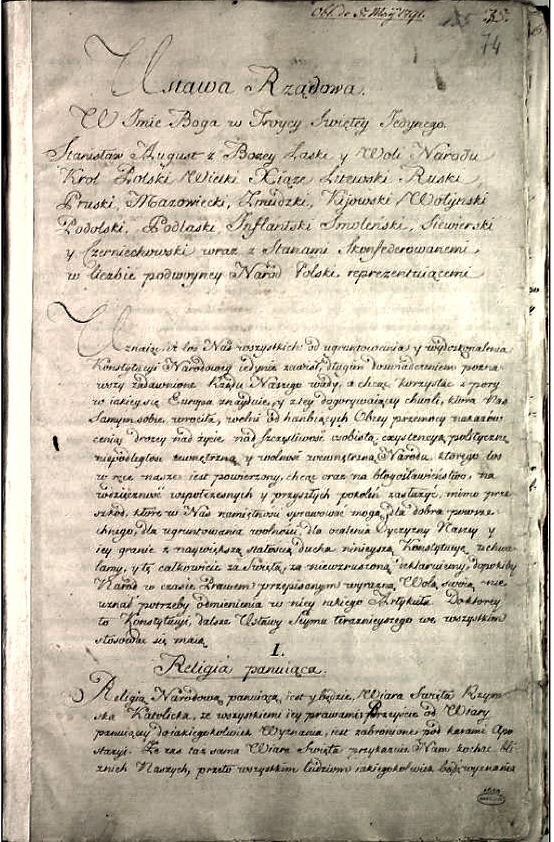 Obl. de 5. Maij 1791.
155 35.
74
Ustawa Rządowa.
W Imie Boga w Troycy Swiętey Jedynego.
Stanisław August z Bożey Łaski y Woli Narodu
Krol Polski Wielki Xiąże Litewski Ruski
Pruski, Mazowiecki, Zmudzki, Kijowski Wołynski
Podolski, Podlaski Inflantski Smoleński, Siewierski
y Czerniechowski wraz z Stanami Skonfederowanemi
w liczbie podwoyney Naród Polski reprezentuiącemi
Uznaiąc, iż los Nas wszystkich od ugruntowania y wydoskonalenia
Konstytucyi Narodowey iedynie zawisł, długim doświadczeniem pozna-
wszy zadawnione Rządu Naszego wady, a chcąc korzystać z pory
w iakiey się Europa znayduie, y z tey dogorywaiącey chwili, ktora Nas
samym sobie wrociła, wolni od hanbiących Obcey przemocy nakazow
ceniąc drożey nad życie, nad szczęśliwość osobistą exystencyą polityczną
niepodległość zewnętrzną y wolność wewnętrzną Narodu, ktorego los
w ręce nasze iest powierzony, chcąc oraz na błogosławieństwo, na
wdzięczność wspołczesnych y przyszłych pokoleń zasłużyć, mimo prze-
szkod, ktore w Nas namiętności sprawować mogą, dla dobra powsze-
chnego, dla ugruntowania wolności, dla ocalenia Oyczyzny Naszey y
iey granic z naywiększą stałością ducha ninieyszą Konstytucyę uchwa-
lamy, y tę całkowicie za świętą, za niewzruszoną deklaruiemy, dopokiby
Narod w czasie Prawem przepisanym wyrazną Wolą swoią nie
uznał potrzeby odmienienia w niey iakiego Artykułu. Do ktorey
to Konstytucyi, dalsze Ustawy Seymu teraznieyszego we wszystkim
stosować się maią
I.
Religia panuiąca.
Religią Narodową panuiącą iest y będzie Wiara Swięta Rzym-
ska Katolicka, ze wszystkiemi iey prawami. Przeyście od Wiary
panuiącey do iakiegokolwiek Wyznania, iest zabronione pod karami Apo
stazyi. Że zas taż sama Wiara Swięta przykazuie Nam kochać bli-
znich Naszych, przeto wszystkim ludziom iakiegokolwiek bądź wyznania